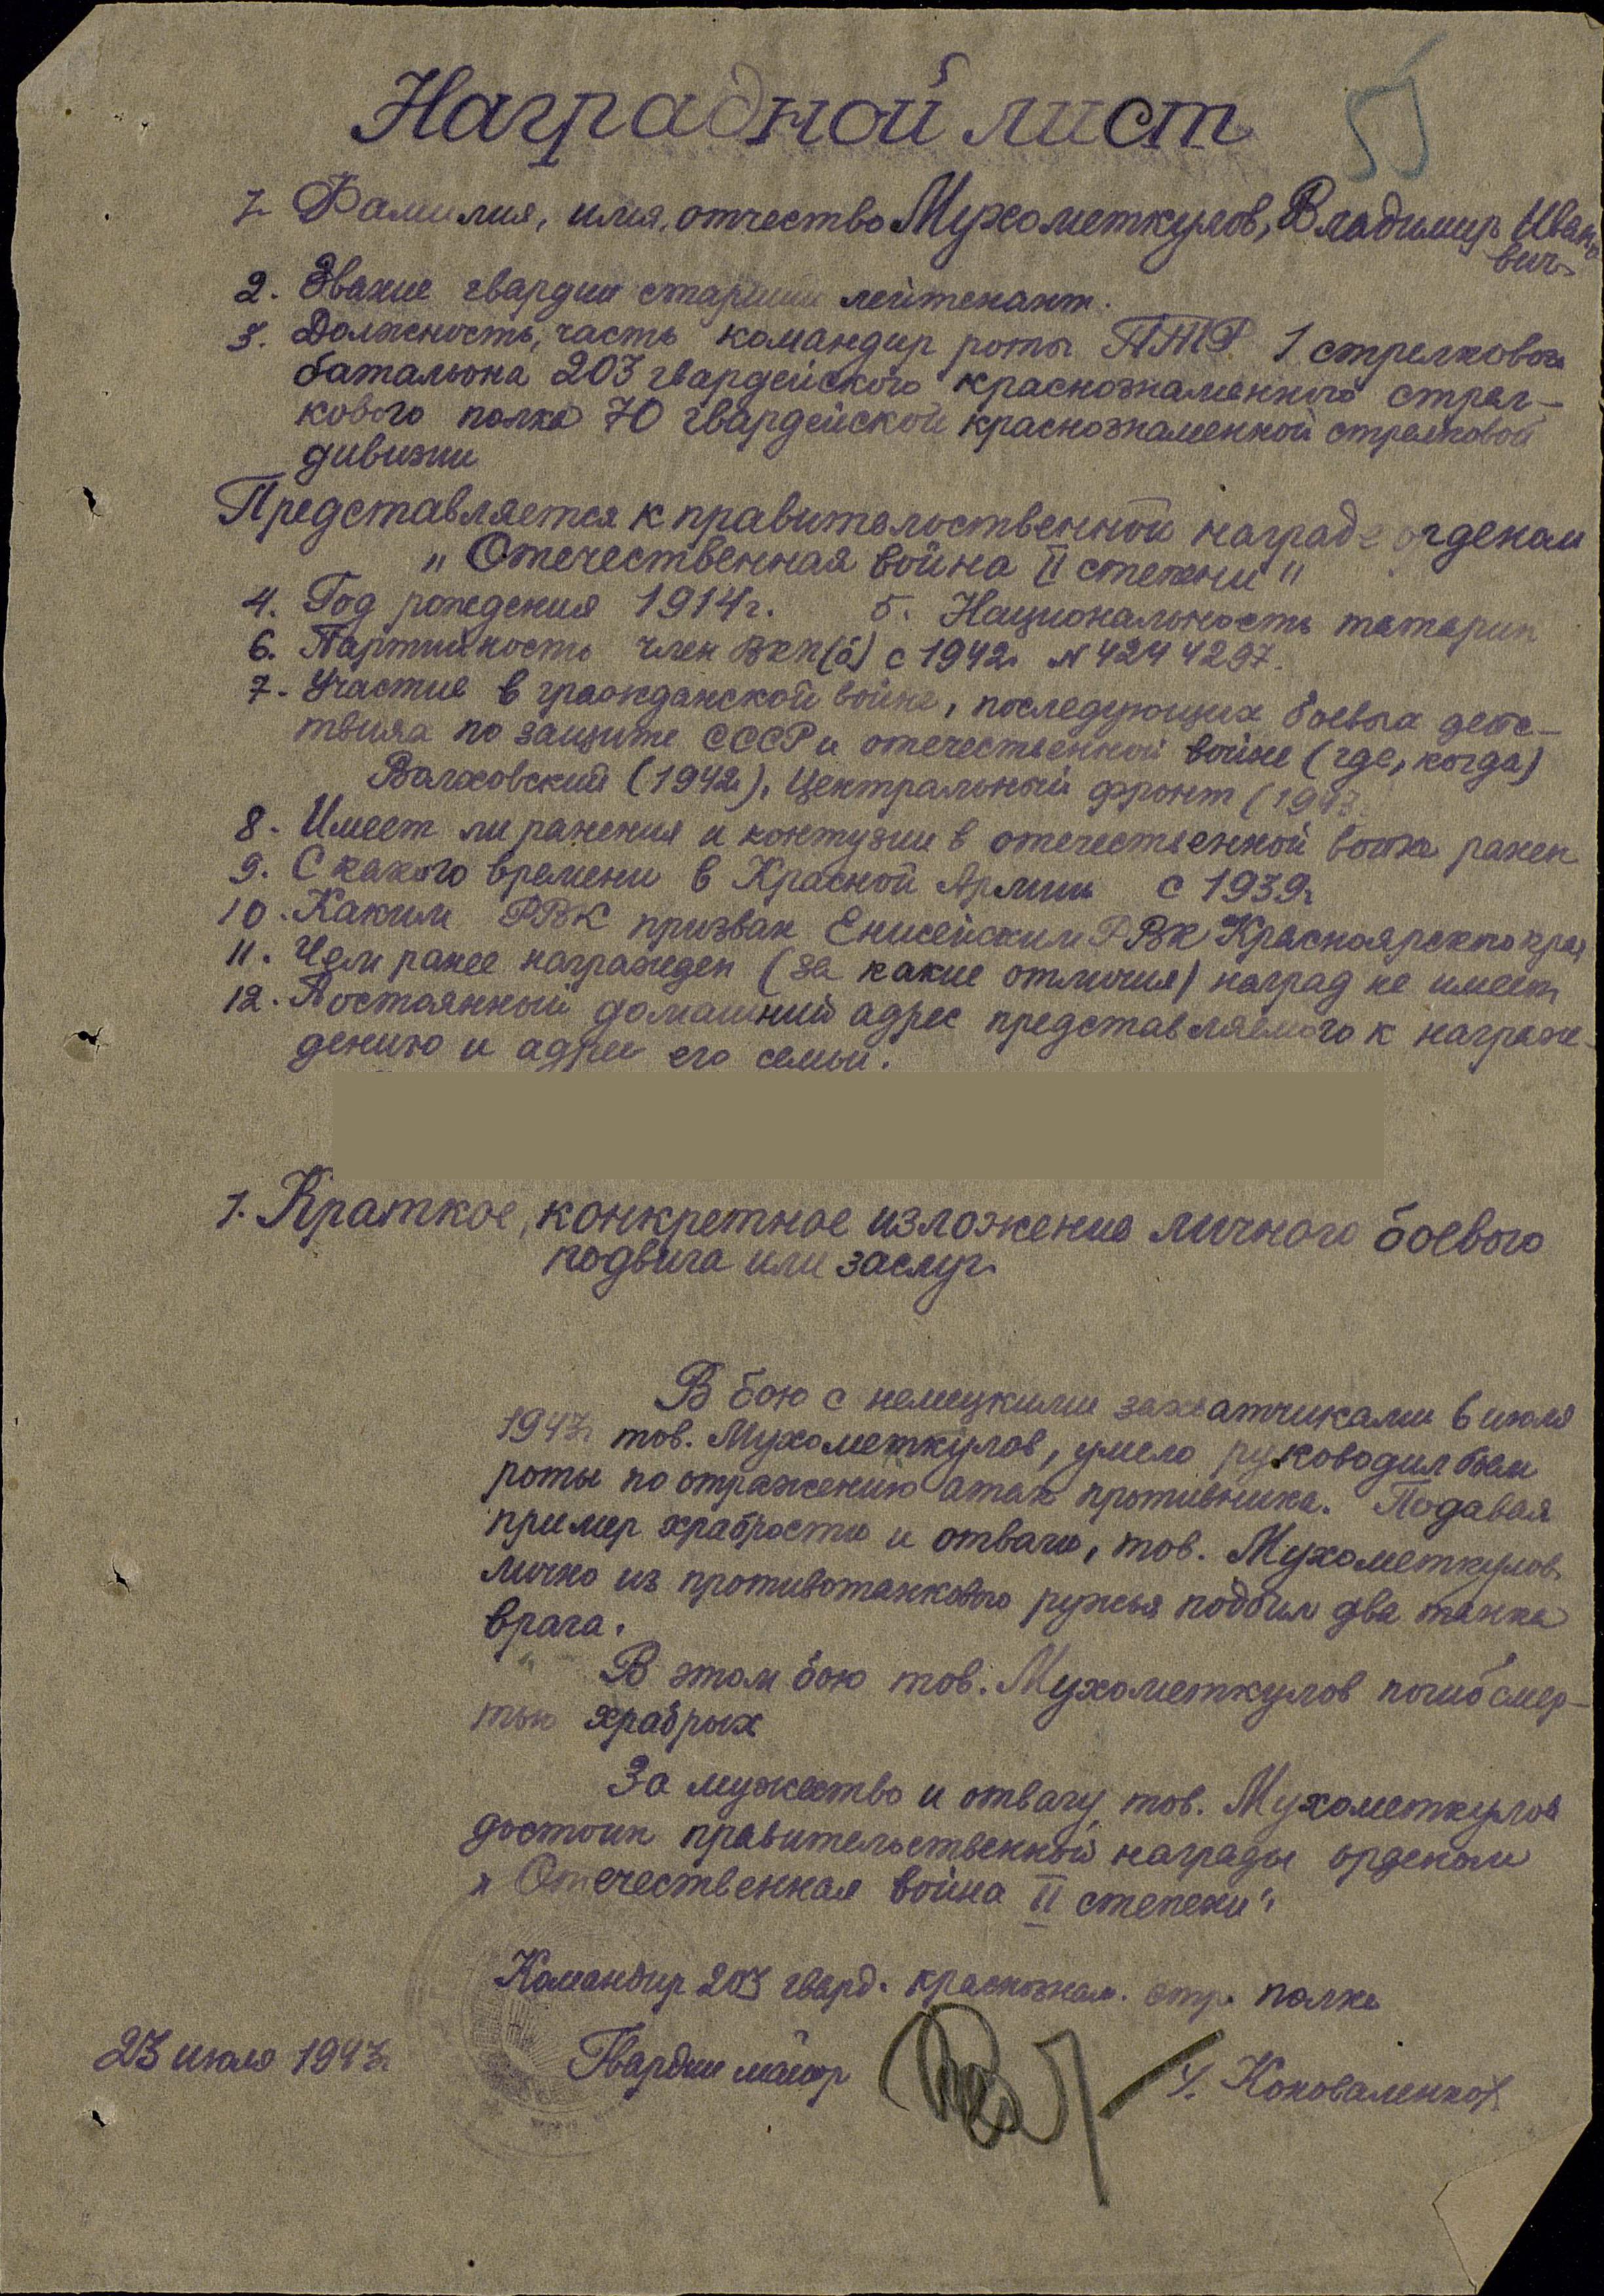 55
Наградной лист
1. Фамилия, имя, отчество Мухометкулов, Владимир Ивано
вич
2. Звание гвардии старший лейтенант.
3. Должность, часть командир роты ПТР 1 стрелкового
батальона 203 гвардейского краснознаменного стрел-
кового полка 70 гвардейской краснознаменной стрелковой
дивизии
Представляется к правительственной награде орденом
"Отечественная война II степени"
4. Год рождения 1914г. 5. Национальность татарин
6. Партийность член ВКП(б) с 1942г. N 4244297.
7. Участие в гражданской войне, последующих боевых дейс-
твиях по защите СССР и отечественной войне (где, когда)
Волховский (1942г.), Центральный фронт (1943
8. Имеет ли ранения и контузии в отечественной войне ранен
9. С какого времени в Красной Армии с 1939г.
10. Каким РВК призван Енисейским РВК Красноярского края
11. Чем ранее награжден (за какие отличия) наград не имеет
12. Постоянный домашний адрес представляемого к награж-
дению и адрес его семьи.
1. Краткое, конкретное изложение личного боевого
подвига или заслуг.
В бою с немецкими захватчиками 6 июля
1943г. тов. Мухометкулов, умело руководил боем
роты по отражению атак противника. Подавая
пример храбрости и отваги, тов. Мухометкулов
лично из противотанкового ружья подбил два танка
врага.
В этом бою тов. Мухометкулов погиб смер-
тью храбрых
За мужество и отвагу тов. Мухометкулов
достоин правительственной награды орденом
"Отечественная война II степени".
Командир 203 гвард. краснознам. стр. полка
23 июля 1943г. Гвардии майор /. Коноваленко/